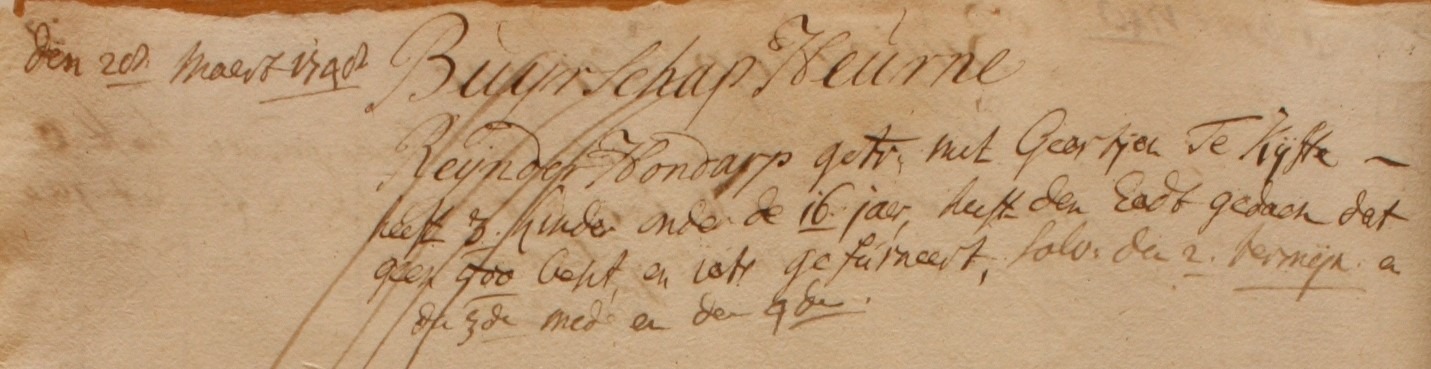 den 28 Maert 1748
Buijrschap Heurne
Reijnder Hondarp getr. met Geertjen Te Kijfte –
heeft 3. kinder onder de 16 jaer, heeft den Eadt gedaen dat
geen 500 besit, en iets gefurneert, solv. den 2. termijn en
den 3de mede en den 4de.